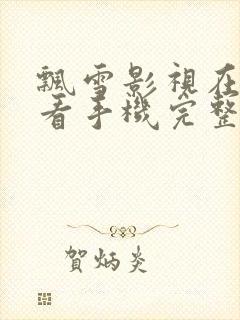 飄雪影視在
看手機完整
賀炳炎